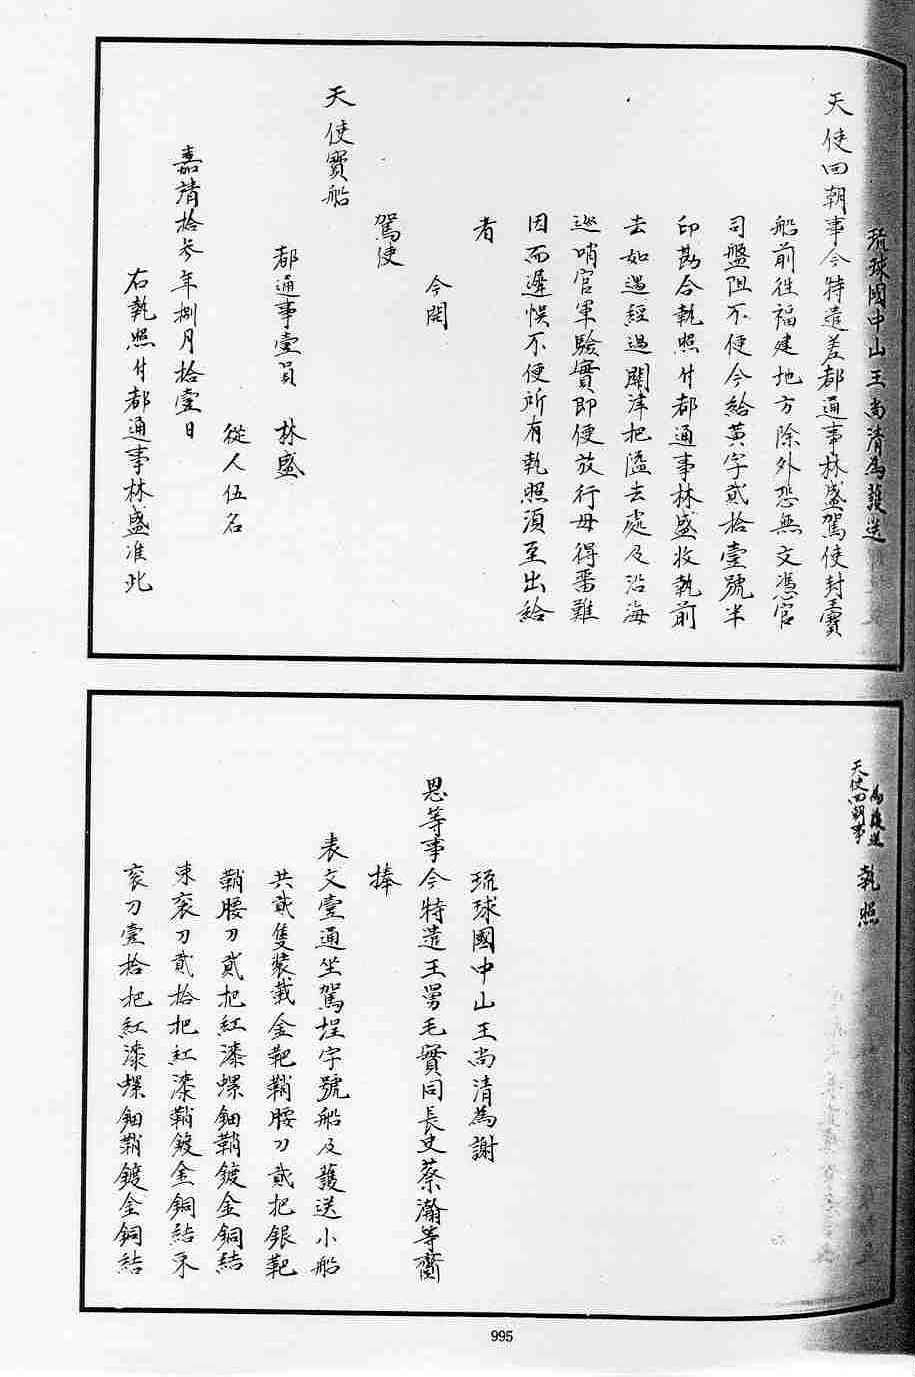 琉球國中山王尚清為護送
天使回朝事今特遣差都通事林盛駕使封王寶
船前徃福建地方除外恐無文憑官
司盤阻不便今給黃字貳拾壹號半
印勘合執照付都通事林盛收執前
去如遇經過關津把隘去處及沿海
巡哨官軍驗實即便放行毋得畱難
因而遲悞不便所有執照須至出給
者
今開
駕使
天使寳船
都通事壹員 林盛
從人伍名
嘉靖拾叄年捌月拾壹日
右執照付都通事林盛准此
為護送
天使回朝事
執照
琉球國中山王尚清為謝
恩等事今特遣王舅毛實同長史蔡瀚等齎
捧
表文壹通坐駕埕字號船及護送小船
共貳隻裝載金靶鞘腰刀貳把銀靶
鞘腰刀貳把紅漆螺鈿鞘鍍金銅結
束衮刀貳拾把紅漆鞘鍍金銅結束
衮刀壹拾把紅漆螺鈿鞘鍍金銅結
995